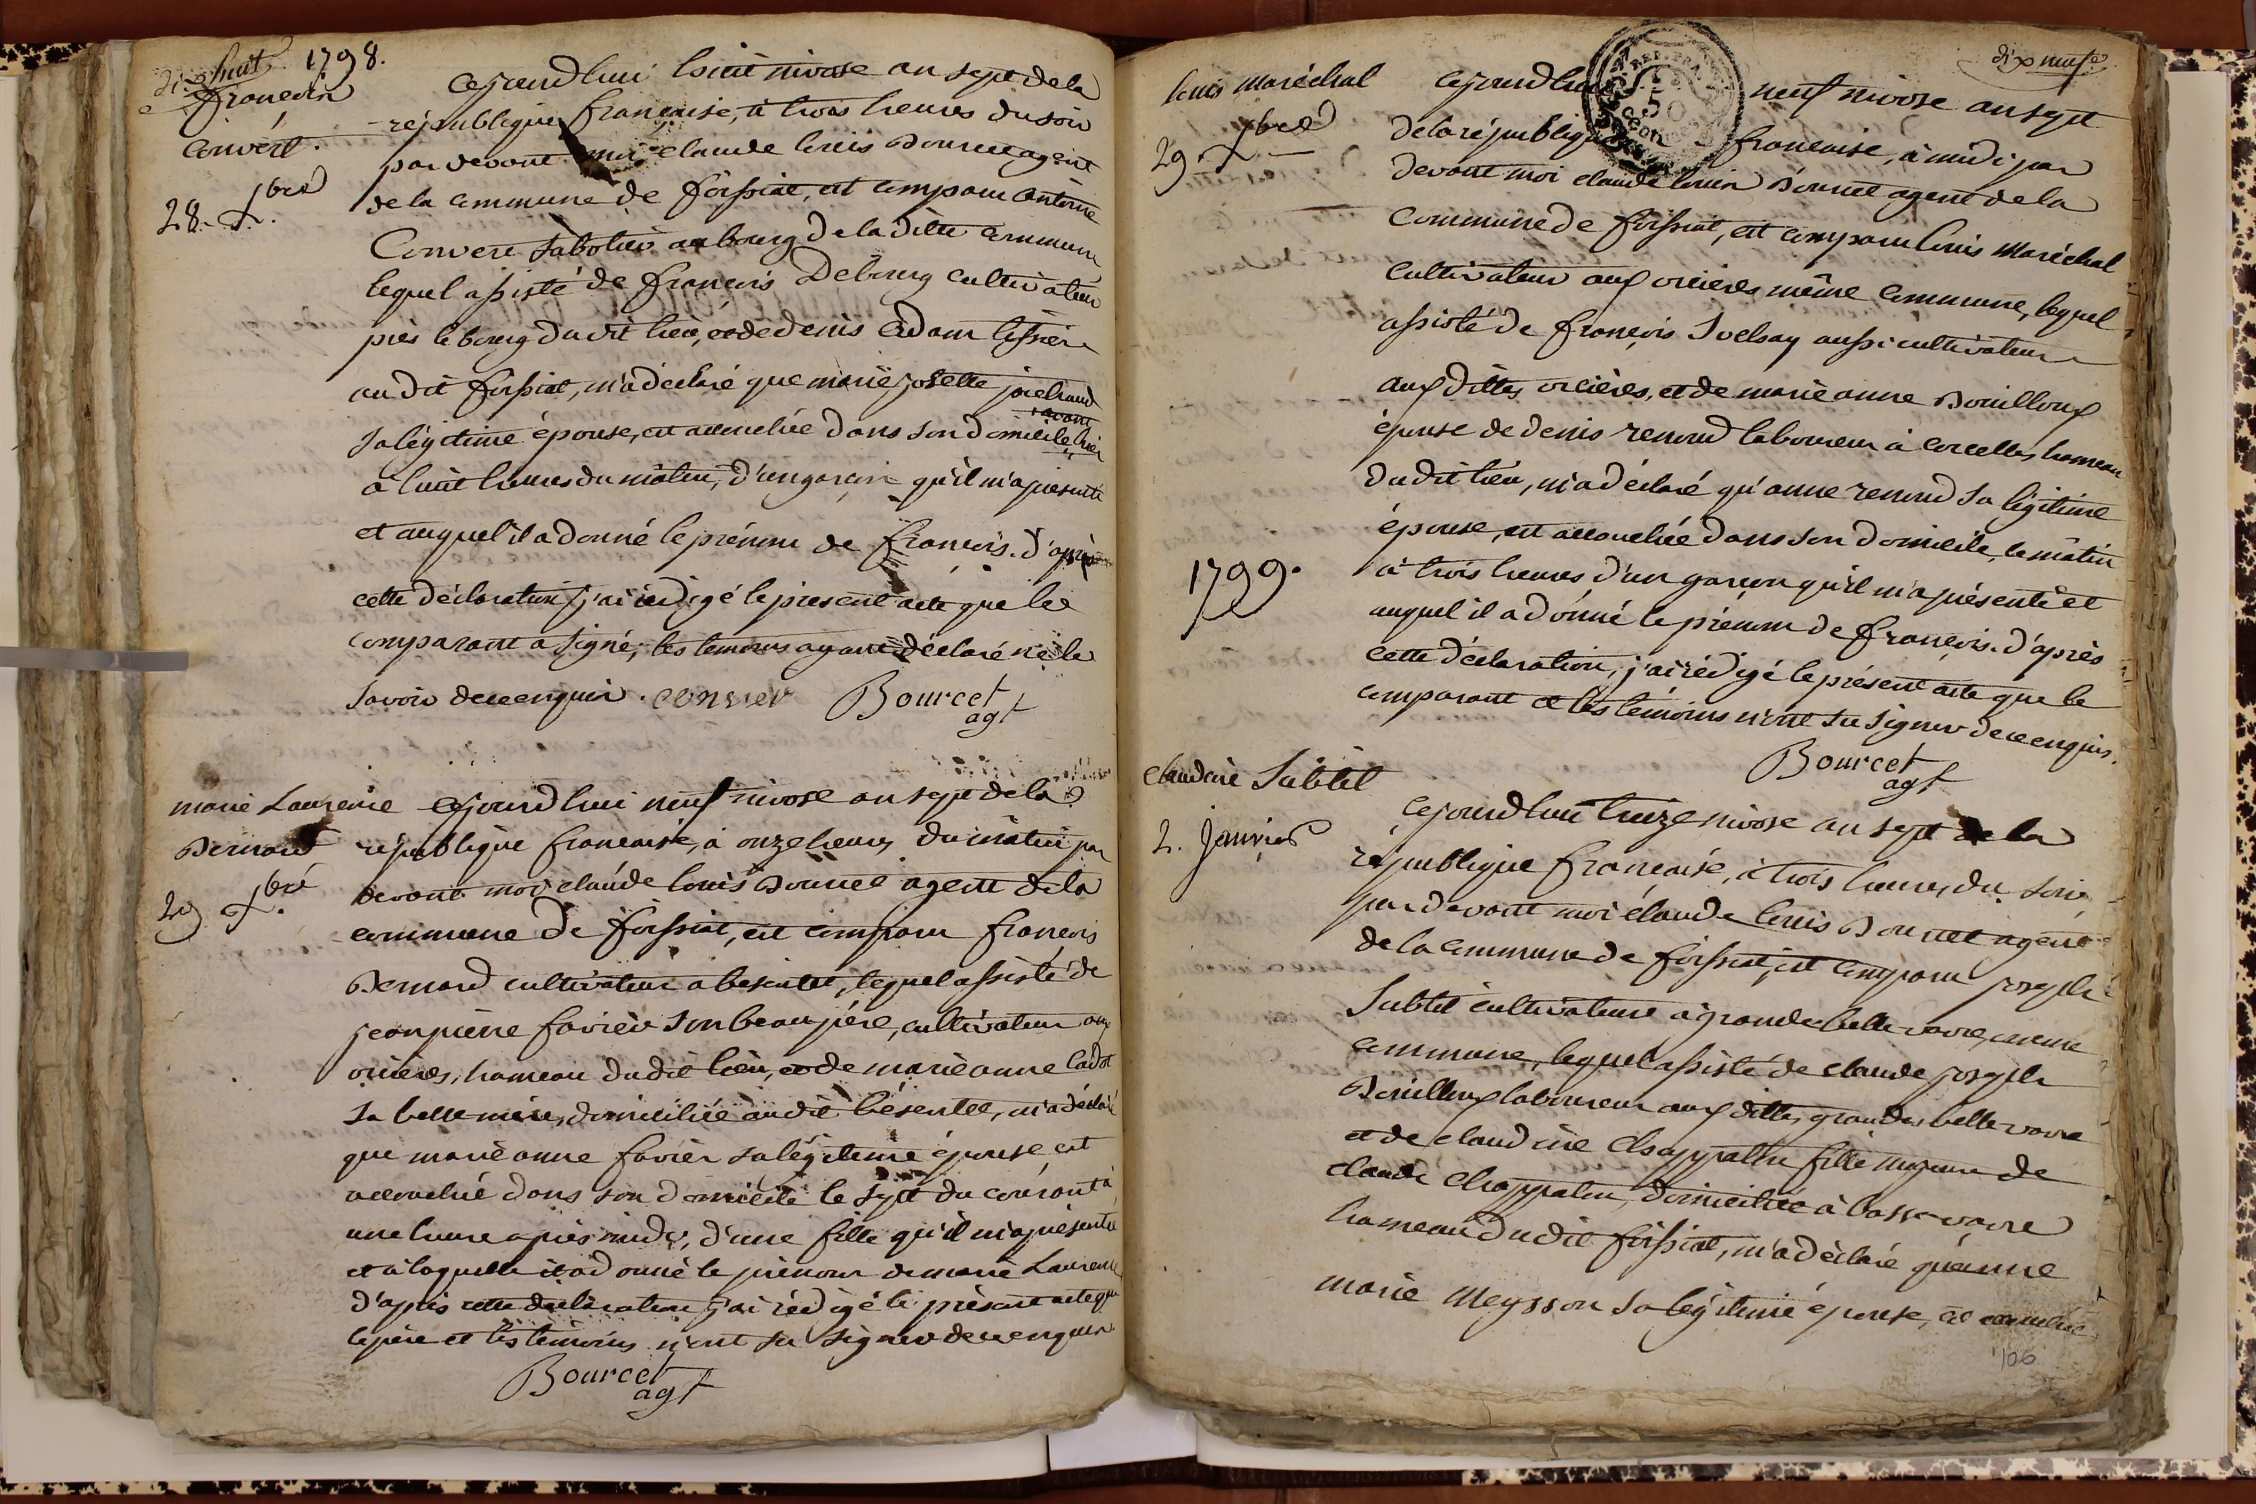 dix huit 1798.
françois
Convert.
28. Xbre
Cejourd'hui huit nivose an sept de la
république française, à trois heures du soir
par devant moi claude louis Bourcet agent
de la commune de foissiat, est comparu antoine
Convert sabotier au bourg de la ditte commune
lequel assisté de françois Debourg cultivateur
près le bourg du dit lieu, et de denis adam tissier
au dit foissiat, m'a déclaré que marie josette
avant
sa légitime épouse, est accouchée dans son domicile hier
à huit heures du matin, d'un garçon qu'il m'a présenté
et auquel il a donné le prénom de françois. d'après
cette déclaration j'ai rédigé le présent acte que le
comparant a signé, les temoins ayant déclaré ne le
savoir de ce enquis. conver Bourcet
agt
marie Laurence
Bernard
29 Xbre
cejourd'hui neuf nivose an sept de la
république française, à onze heures du matin par
devant moi claude louis Bourcet agent de la
commune de foissiat, est comparu françois
Bernard cultivateur a besentet, lequel assisté de
jean pierre favier son beau père, cultivateur aux
orcières, hameau du dit lieu, et de marie anne
sa belle mère, domiciliée au dit besentet, m'a déclaré
que marie anne favier sa légitime épouse est
accouchée dans son domicile le sept du courant à
une heure après midy, d'une fille qu'il m'a présentée
et à laquelle il a donné le prénom de marie Laurence
d'après cette déclaration j'ai rédigé le présent acte que
le père et les témoins n'ont su signer de ce enquis
Bourcet
agt
dix neuf
louis maréchal
29. Xbre
cejourd'hui neuf nivose an sept
de la république française, à midi par
devant moi claude louis Bourcet agent de la
Commune de foissiat, est comparu louis maréchal
cultivateur aux orcières même commune, lequel
assisté de françois aussi cultivateur
aux dittes orcières, et de marie anne Bouilloux
épouse de denis renoud laboureur à corcelles hameau
du dit lieu, m'a déclaré qu'anne renoud sa légitime
épouse, est accouchée dans son domicile, ce matin
1799.
à trois heures d'un garçon qu'il m'a présenté et
auquel il a donné le prénom de françois. d'après
cette déclaration, j'ai rédigé le présent acte que le
comparant et les témoins n'ont su signer de ce enquis.
Bourcet
agt
claudine Subtil
2. Janvier
cejourd'hui treize nivose an sept de la
république française, à trois heures du soir
par devant moi claude louis Bourcet agent
de la commune de foissiat, est comparu joseph
Subtil cultivateur à grande belle vavre, même
commune, lequel assisté de claude joseph
Bouilloux laboureur aux dittes grandes belle vavre
et de claudine Chappatte fille majeure de
claude Chappatte, domiciliée à basse vavre
hameau du dit foissiat, m'a déclaré qu'anne
marie Meysson sa légitime épouse, est accouchée
106